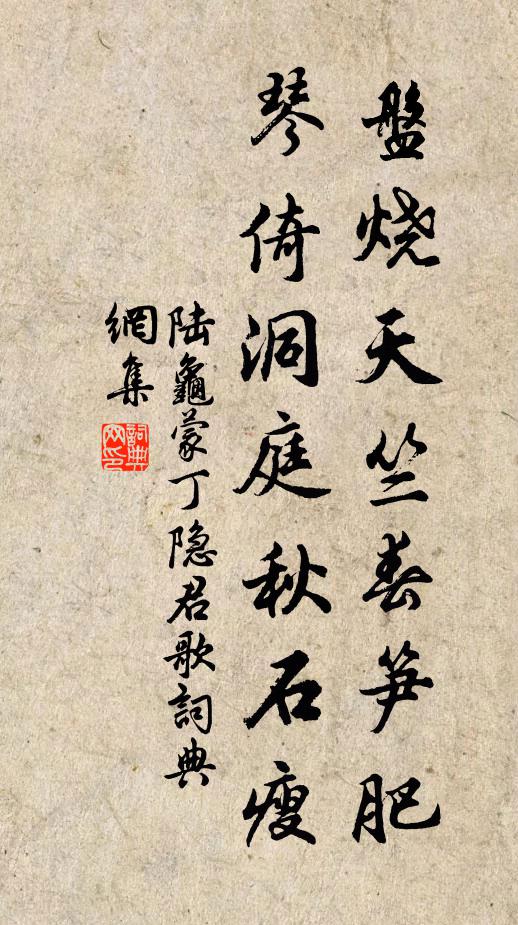 盤烧天竺春笋肥
琴倚洞庭秋石瘦
陆龜蒙丁隐君歌詞典
網集
詞典
网印